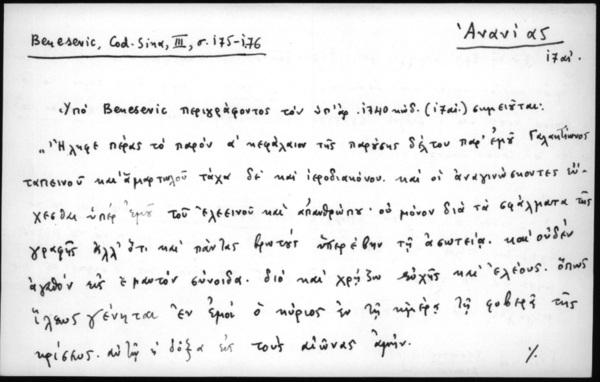 Ἀνανίας
Benesevic, Cod. Sina, III, σ. 175-176
17 αἰ.
Ὑπὸ Benesevic περιγράφοντος τὸν ὑπ' ἀρ. 1740 κώδ. (17 αἰ.) σημειοῦται:
"Ἤληφε πέρας τὸ παρὸν α' κεφάλαιον τῆς παρύσης δέλτου παρ' ἐμοῦ Γαλακτίωνος
ταπεινοῦ καὶ ἁμαρτωλοῦ τάχα δὲ καὶ ἱεροδιακόνου. καὶ οἱ ἀναγινώσκοντες εὔ-
χεσθαι ὑπὲρ ἐμοῦ τοῦ ἐλεεινοῦ καὶ ἀπανθρώπου· οὐ μόνον διὰ τὰ σφάλματα τῆς
γραφῆς ἀλλ' ὅτι καὶ πάντας βροτοὺς ὑπερέβην τῇ ἀσωτείᾳ. καὶ οὐδὲν
ἀγαθὸν εἰς ἐμαυτὸν σύνοιδα. διὸ καὶ χρῄζω εὐχῆς καὶ ἐλέους. ὅπως
ἵλεως γένηται ἐν ἐμοὶ ὁ κύριος ἐν τῇ ἡμέρᾳ τῇ φοβερᾷ τῆς
κρίσεως. αὐτῷ ἡ δόξα εἰς τοὺς αἰῶνας ἀμήν.
%